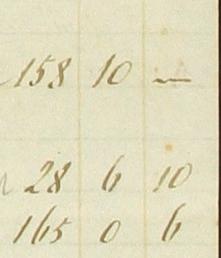 158 10 —
28 6 10
165 0 6